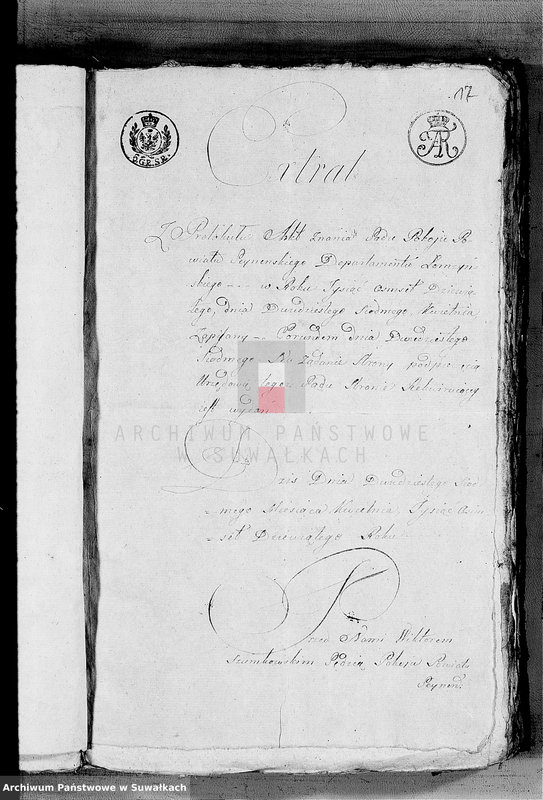 17
6 GR. SR.
Extrakt
Z Protokułu Akt Znania Sądu Pokoju Po
wiatu Seynenskiego Departamentu Łomżyń
skiego - - - w Roku Tysiąc osmset Dziewią
tego, dnia Dwudziestego Siodmego, Kwietnia
Zapisany - dnia Dwudziestego
Siodmego Na żądanie Strony pod
Urzędową tegoż Sądu Stronie
jest wydan
ARCHIWUM PAŃSTWOWE
W SUWAŁKACH
Dziś Dnia Dwudziestego Siod
mego Miesiąca Kwietnia, Tysiąc Osm
set Dziewiątego Roku
Przed Nami Wiktorem
Szumkowskim Pokoju Powiatu
Seynen
Archiwum Państwowe w Suwałkach